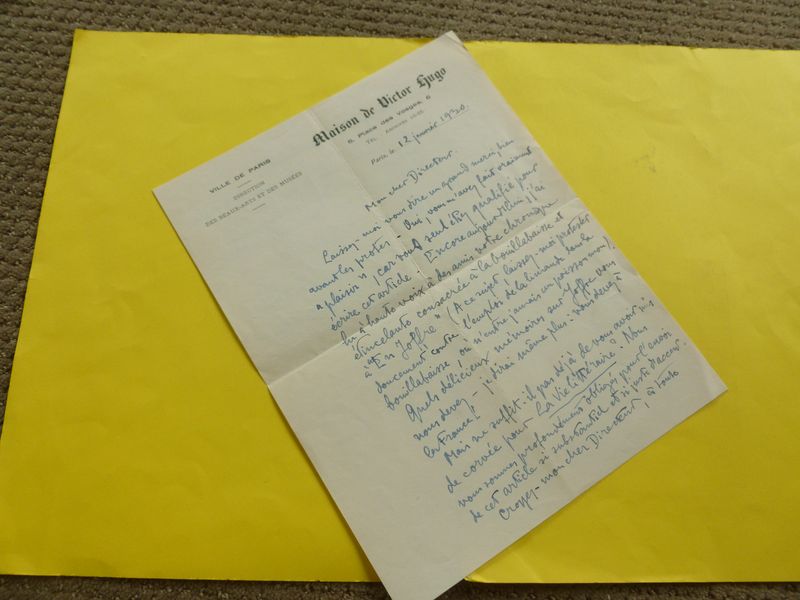 Maison de Victor Hugo
6, Place des Vosges, 6
TÉL. ARCHIVES
VILLE DE PARIS
DIRECTION
DES BEAUX-ARTS ET DES MUSÉES
Paris, le 12 janvier 1930.
Mon cher Directeur.
Laissez-moi vous dire un grand merci, bien
avant les protes - Oui, vous m'avez fait vraiment
"plaisir" (car vous seul étiez qualifié pour
écrire cet article. Encore aujourd'hui, j'ai
lu à haute voix à des amis votre chronique
étincelante consacrée à la bouillabaisse et
à "En Joffre" (A ce sujet laissez-moi protester
doucement contre l'emploi de la limande dans la
bouillabaisse, où n'entre jamais un poisson mou).
Quels délicieux mémoires sur Joffre vous
nous devez - j'dirai même plus: vous devez à
la France!
Mais ne suffit-il pas déjà de vous avoir mis
de corvée pour La Vie littéraire? Nous
vous sommes profondément obligés pour l'envoi
de cet article si substantiel et si juste d'accent.
Croyez-mon cher Directeur, à toute